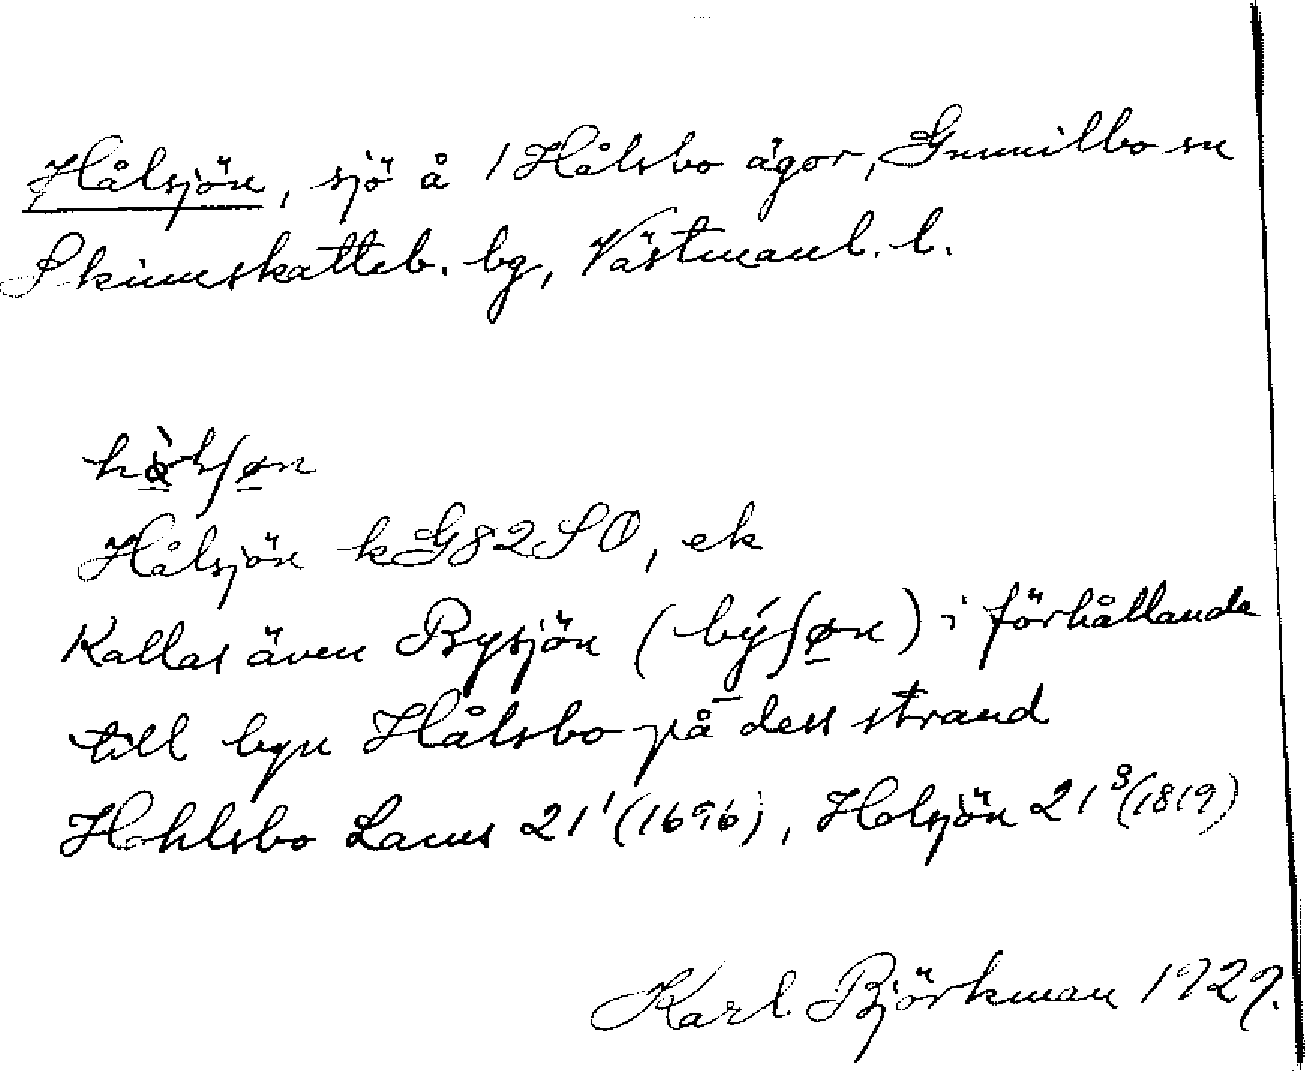 Hålsjön, sjö å 1 Hålsbo ägor, Gunnilbo sn
Skinnskatteb. bg, Västmanl. l.
hå̀lʃøn
Hålsjön kG82SO, ek
Kallas även Bysjön (býʃøn) i förhållande
till byn Hålsbo på dess strand
Hohlsbo Lacus 21¹ (1696), Holsjön 21³ (1819)
Karl Björkman 1929.